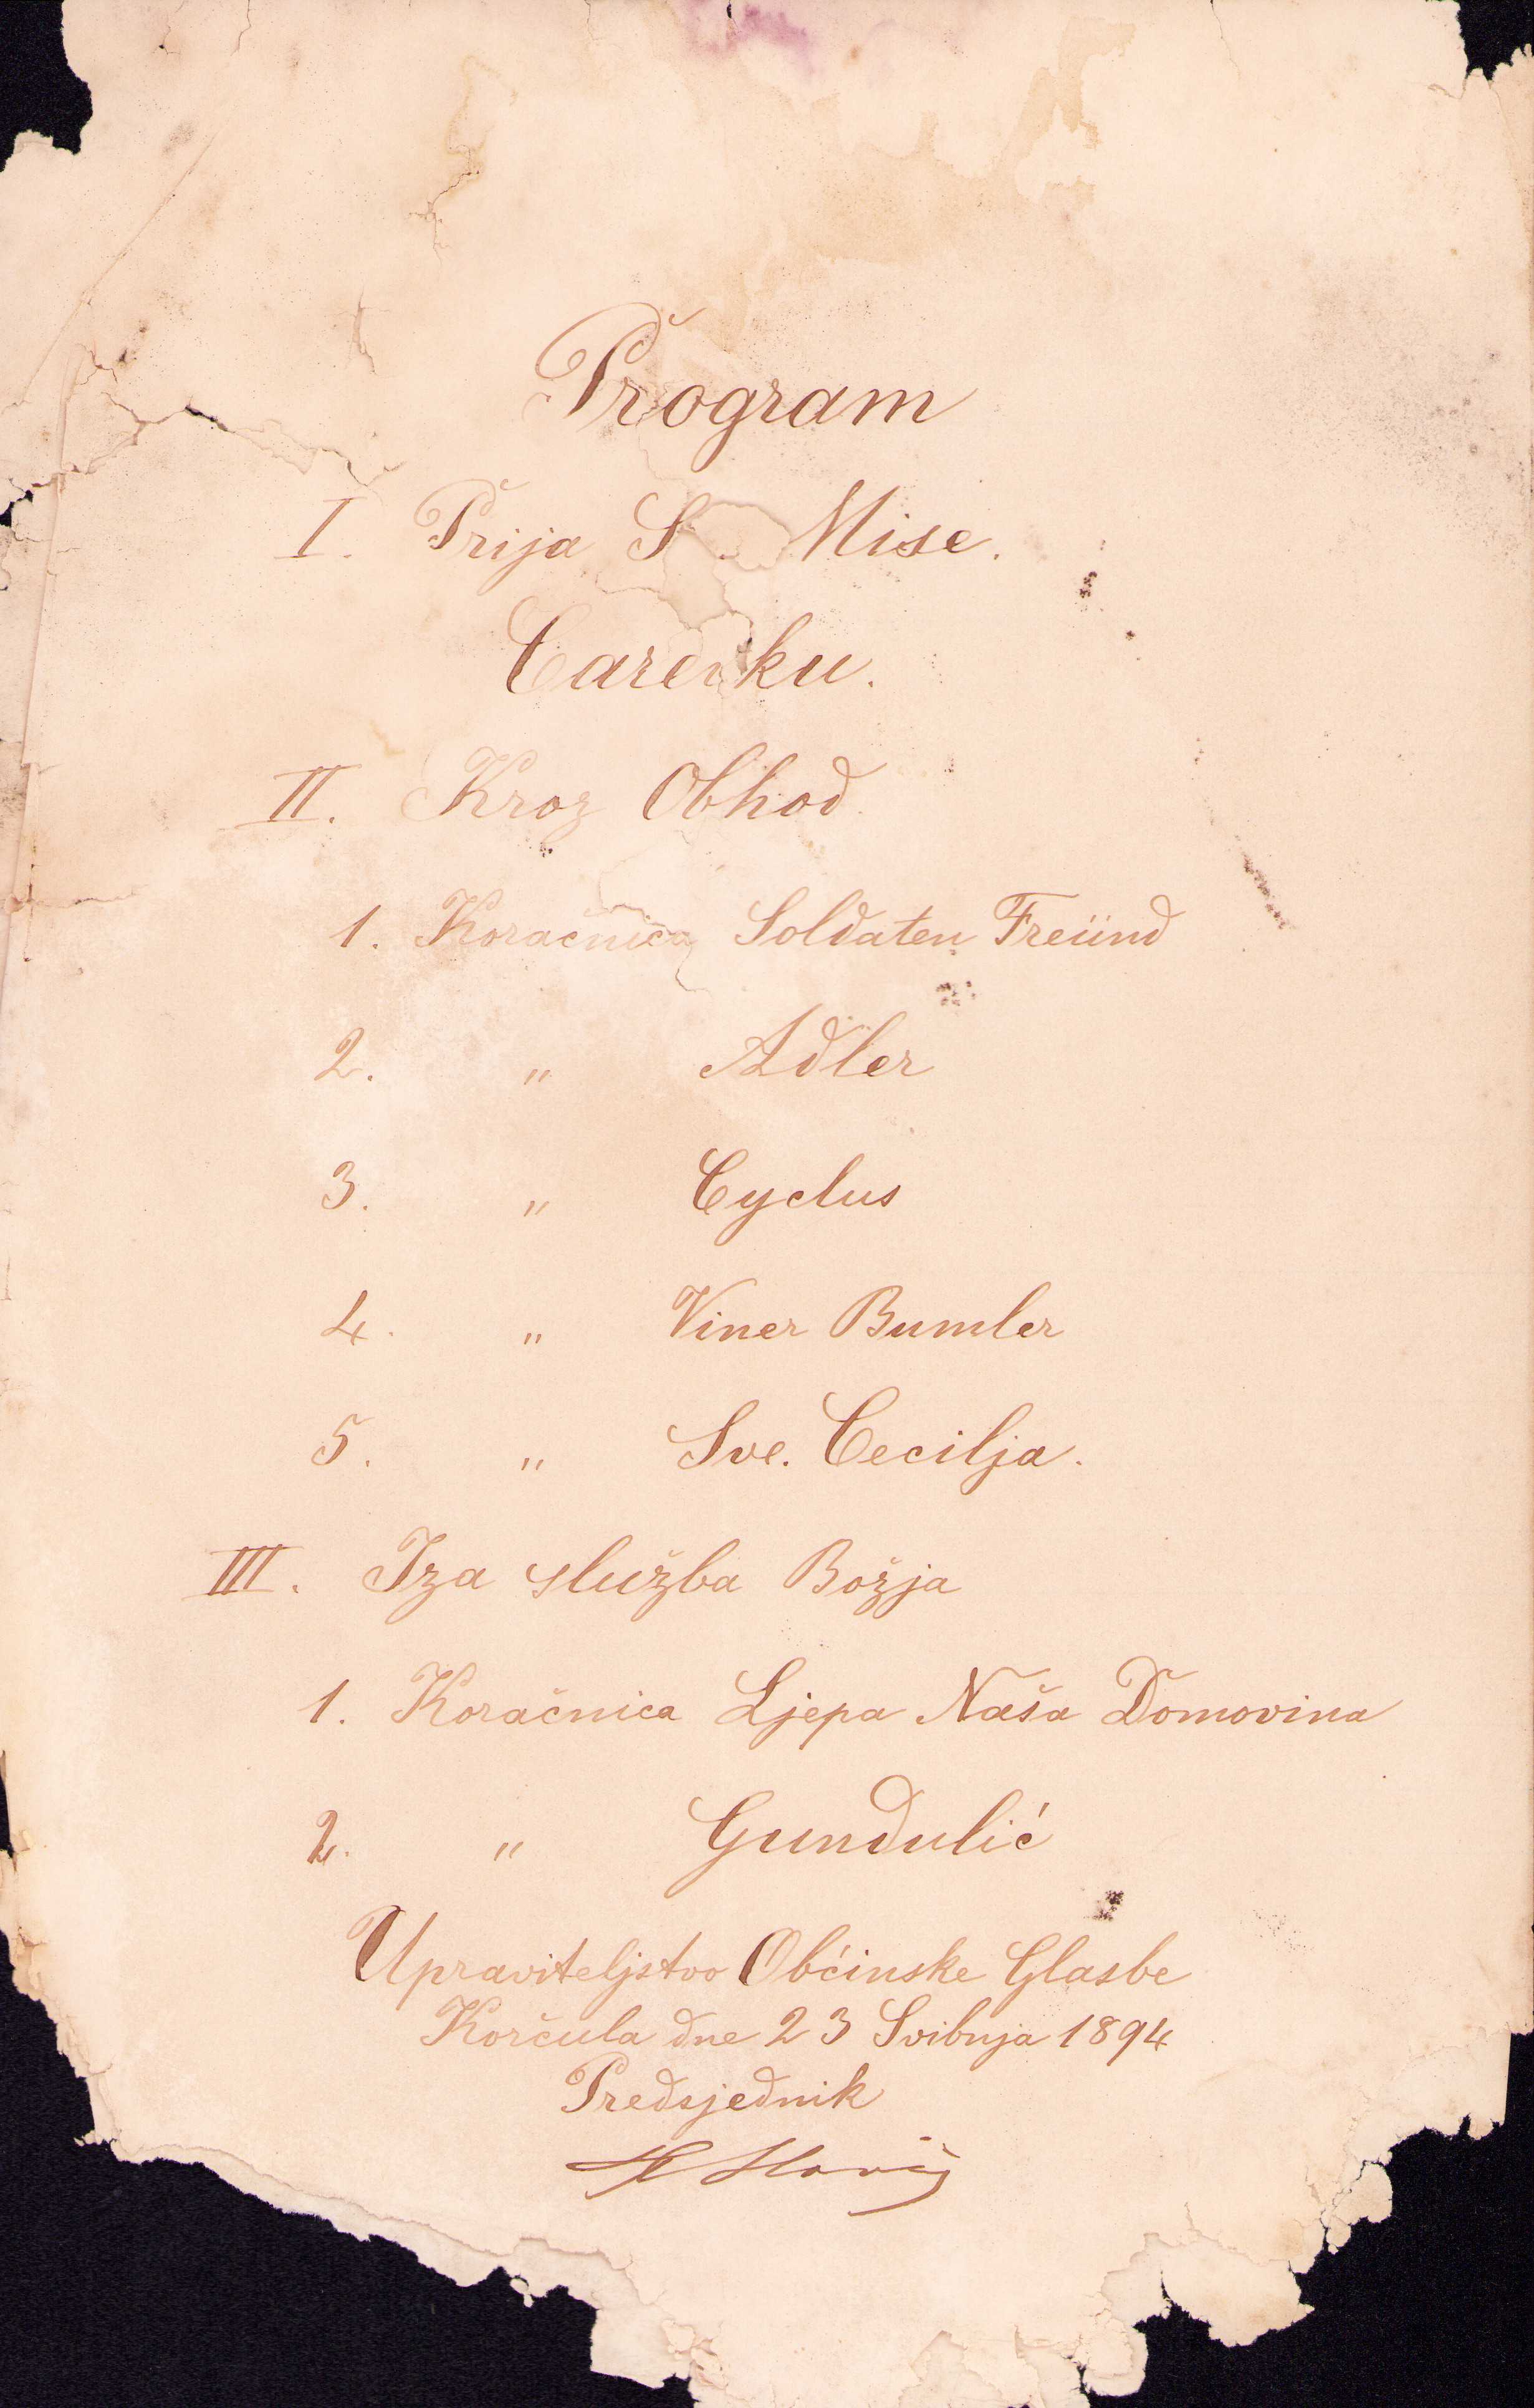 Program
I. Prija S. Mise.
Carevku.
II. Kroz Obhod.
1. Koračnica Soldaten Freünd
2. " Adler
3. " Cyclus
4. " Viner Bumler
5. " Sve. Cecilja.
III. Iza služba Božja
1. Koračnica Ljepa Naša Domovina
2. " Gundulić
Upraviteljstvo Obćinske Glasbe
Korčula dne 23 Svibnja 1894
Predsjednik